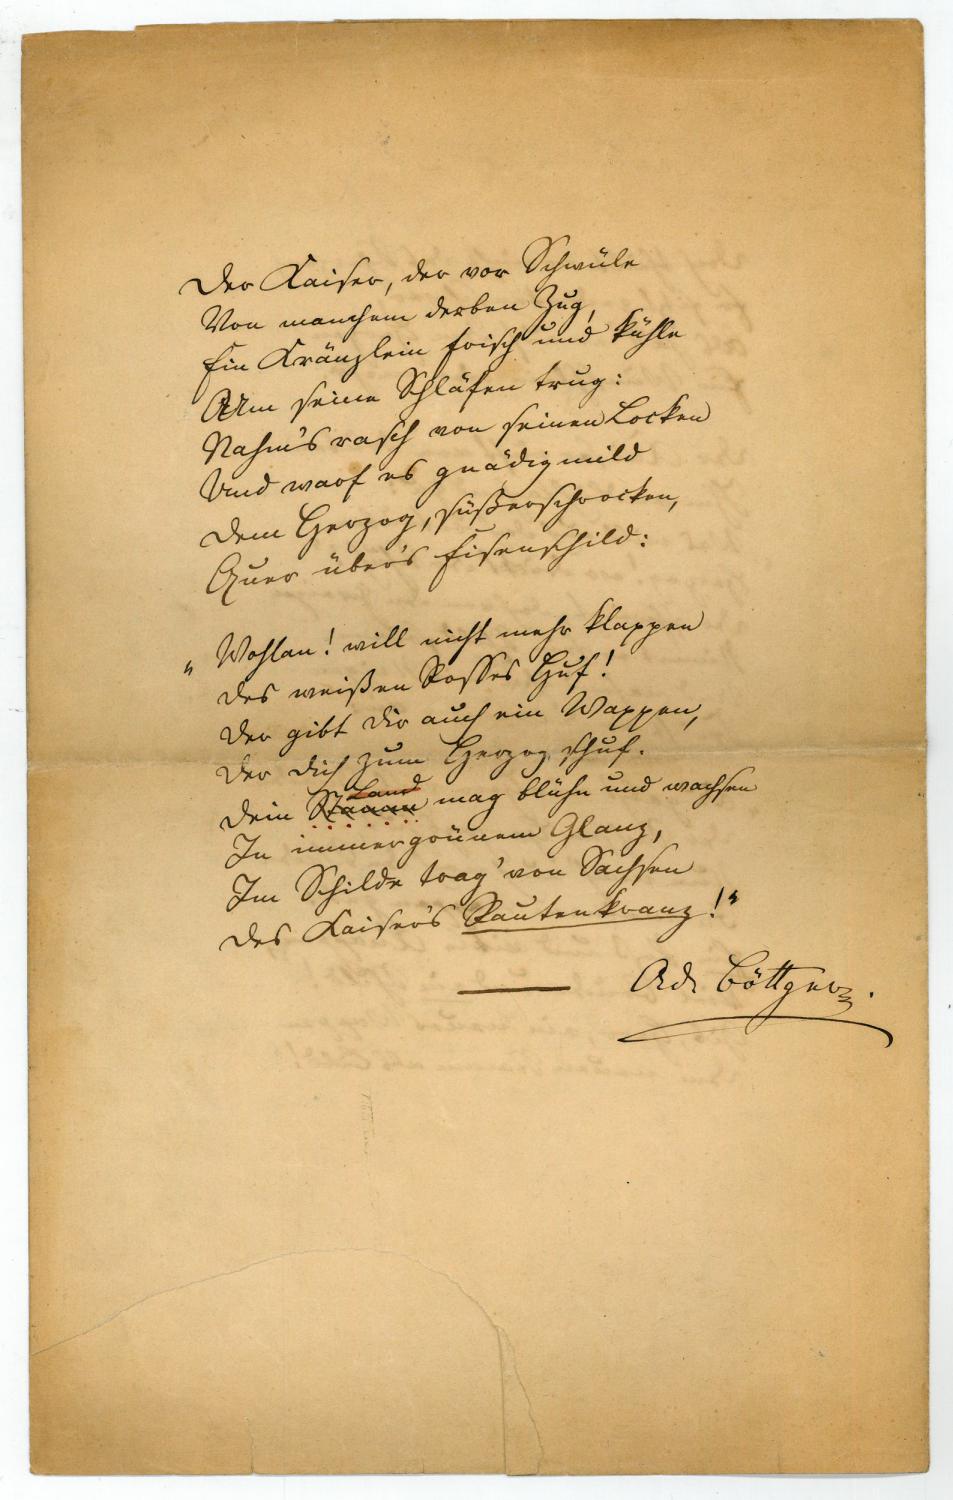 Der Kaiser, der vor Schwüle
Von manchem derben Zug,
Ein Kränzlein frisch und kühle
Um seine Schläfen trug:
Nahm's rasch von seinen Locken
Und warf es gnädig mild
Dem Herzog, süßerschrocken,
Quer über's Eisenschild:
„Wohlan! will nicht mehr klappen
Des weißen Rosses Huf!
Der gibt dir auch ein Wappen,
Der dich zum Herzog schuf.
Land
Dein Stamm mag blühn und wachsen
In immergrünem Glanz,
Im Schilde trag' von Sachsen
Des Kaisers Rautenkranz!"
Ad. Böttger.